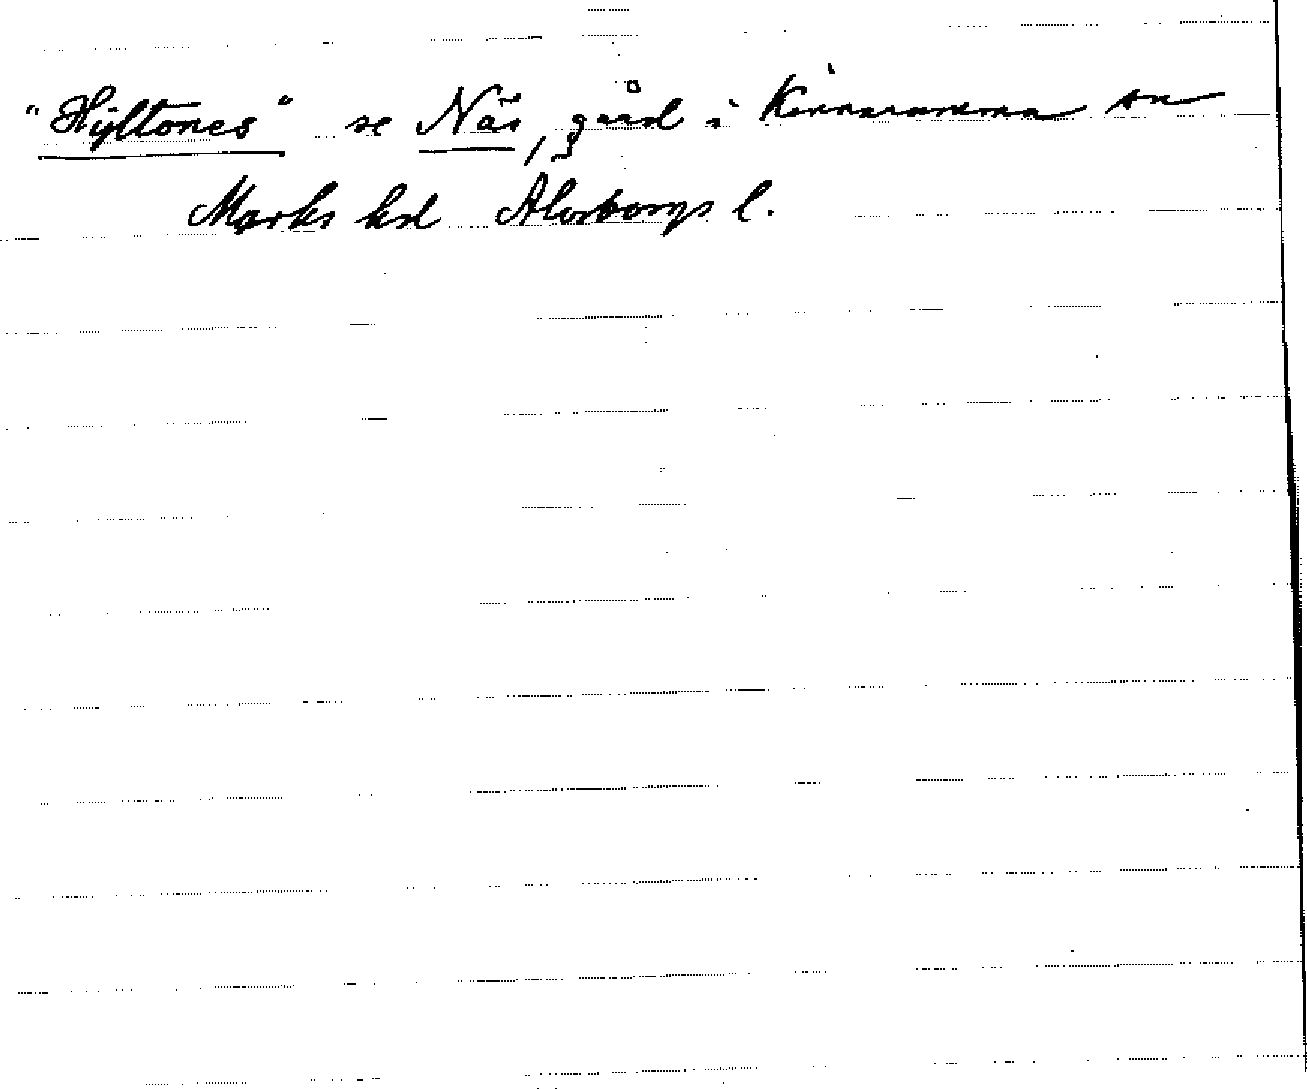 "Hÿltones" se Näs, gård i Kinnarumma sn
Marks hd Älvsborgs l.